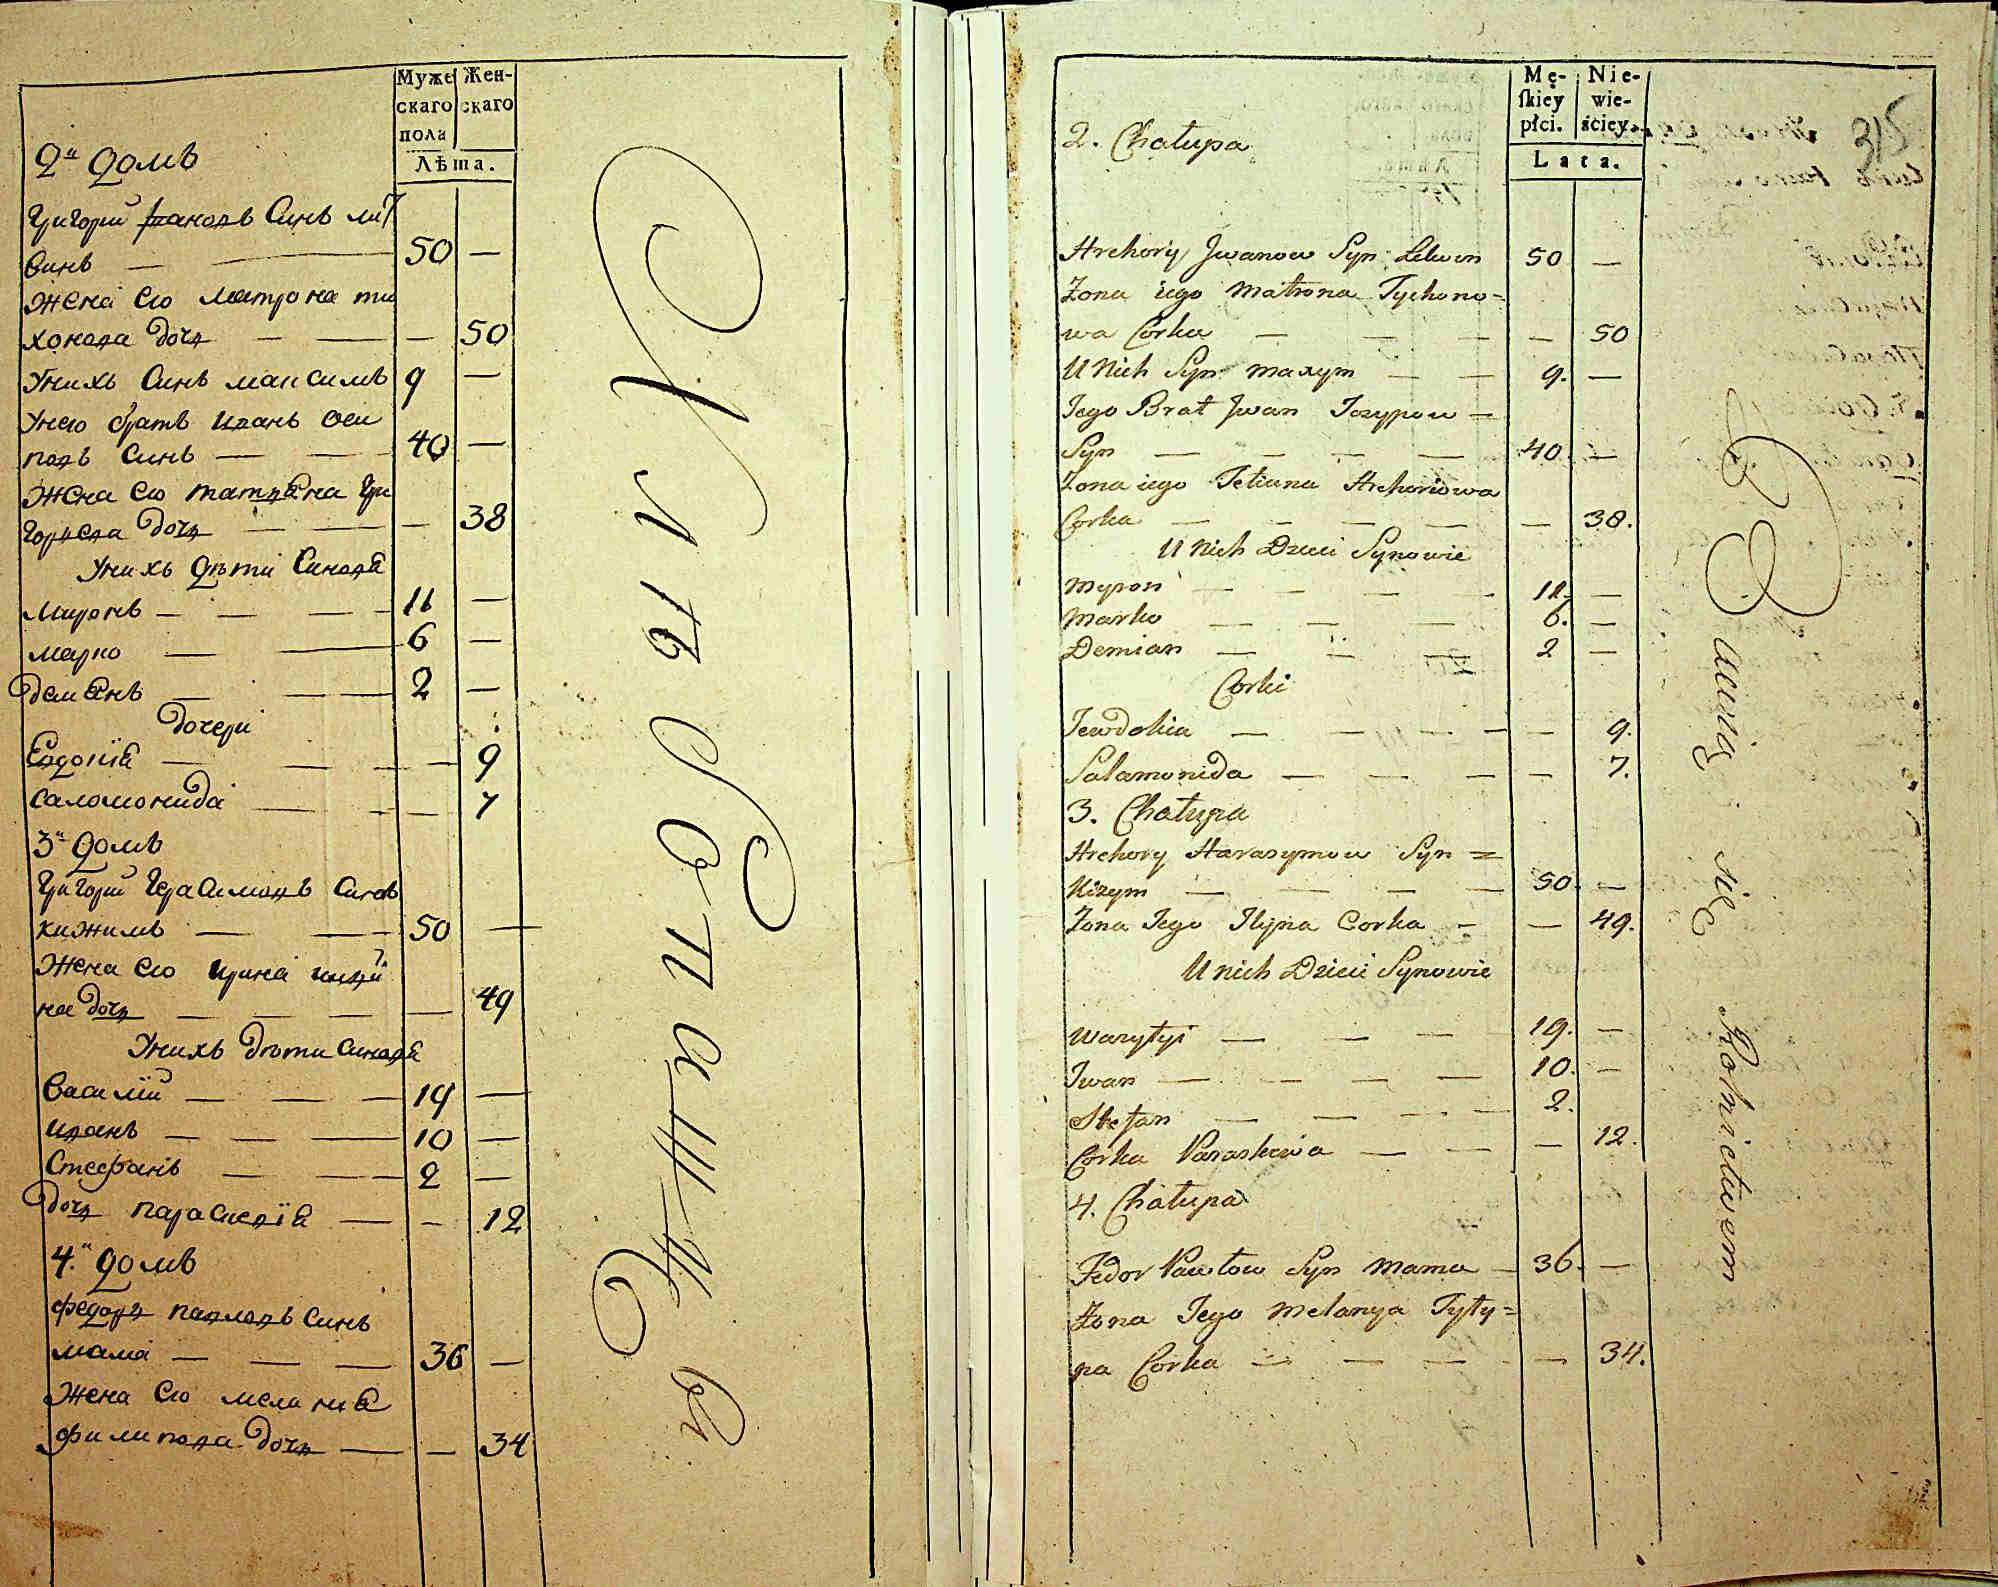 Муже
скаго
пола
Жен-
скаго
Лѣта.
2й домъ
Григорий Ивановъ Синъ лит
винъ — — 50 —
Жена его матрона ти
хонова дочь — — — 50
Унихъ Синъ максимъ 9 —
Унего братъ иванъ оси
повъ Синъ — — — 40 —
Жена его татиана гри
гориева дочь — — — 38
Унихъ дѣти Синовя
миронъ — — — 11 —
марко — — 6 —
демянъ — — — 2 —
дочери
Евдокия — — — — 9
саломонида — — — — 7
3й домъ
Григорий Герасимовъ Синъ
кизимъ — — 50 —
Жена его ирина
на дочь — — — — — 49
Унихъ дѣти Синовя
Василий — — — 19 —
иванъ — — — 10 —
Стефанъ — — — 2 —
дочь параскевия — — 12
4й домъ
федоръ павловъ Синъ
мама — — — 36 —
Жена его мелания
филипова дочь — — 34
Хлѣбопашци
315
Mę-
skiey
płci.
Nie-
wie-
ściey.
Lata.
2. Chałupa
Hrehory Jwanow Syn Litwin 50 —
Zona iego Matrona Tychono=
wa Corka — — — — 50
U Nich Syn Maxym — — 9. —
Jego Brat Jwan Jozypow —
Syn — — — — 40. —
Zona iego Tetiana Hrehoriowa
Corka — — — — — 38.
U Nich Dzieci Synowie
Myron — — — — 12. —
Marko — — — 6. —
Demian — — — 2 —
Corki
Jewdokia — — — — — 9.
Salamonida — — — — 7.
3. Chałupa
Hrehory Harasymow Syn =
Kizym — — — — 50. —
Zona Jego Jlijna Corka — — 49.
U nich Dzieci Synowie
Wasylyi — — — 19. —
Jwan — — — — 10. —
Stefan — — — — 2.
Corka Paraskewia — — — 12.
4. Chałupa
Fedor Pawłow Syn Mama — 36. —
Zona Jego Melanya Fyły=
pa Corka — — — — 34.
Bawią się Rolnictwem